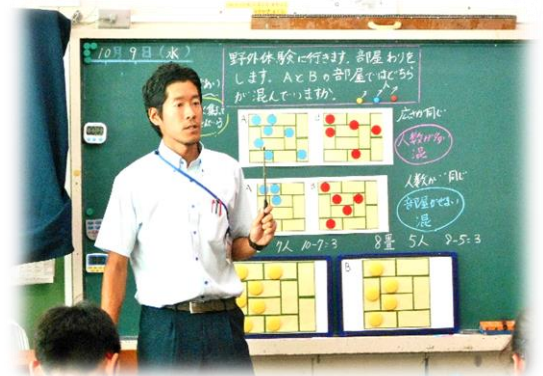 10月9日(水)
野外体験に行きます。部屋わりを
します。AとBの部屋ではどちら
が混んでいますか。
広さが同じ
人数が
混
人数が同じ
部屋がせまい
混
A
B
7人 10-7=3
8畳 5人 8-5=3
B